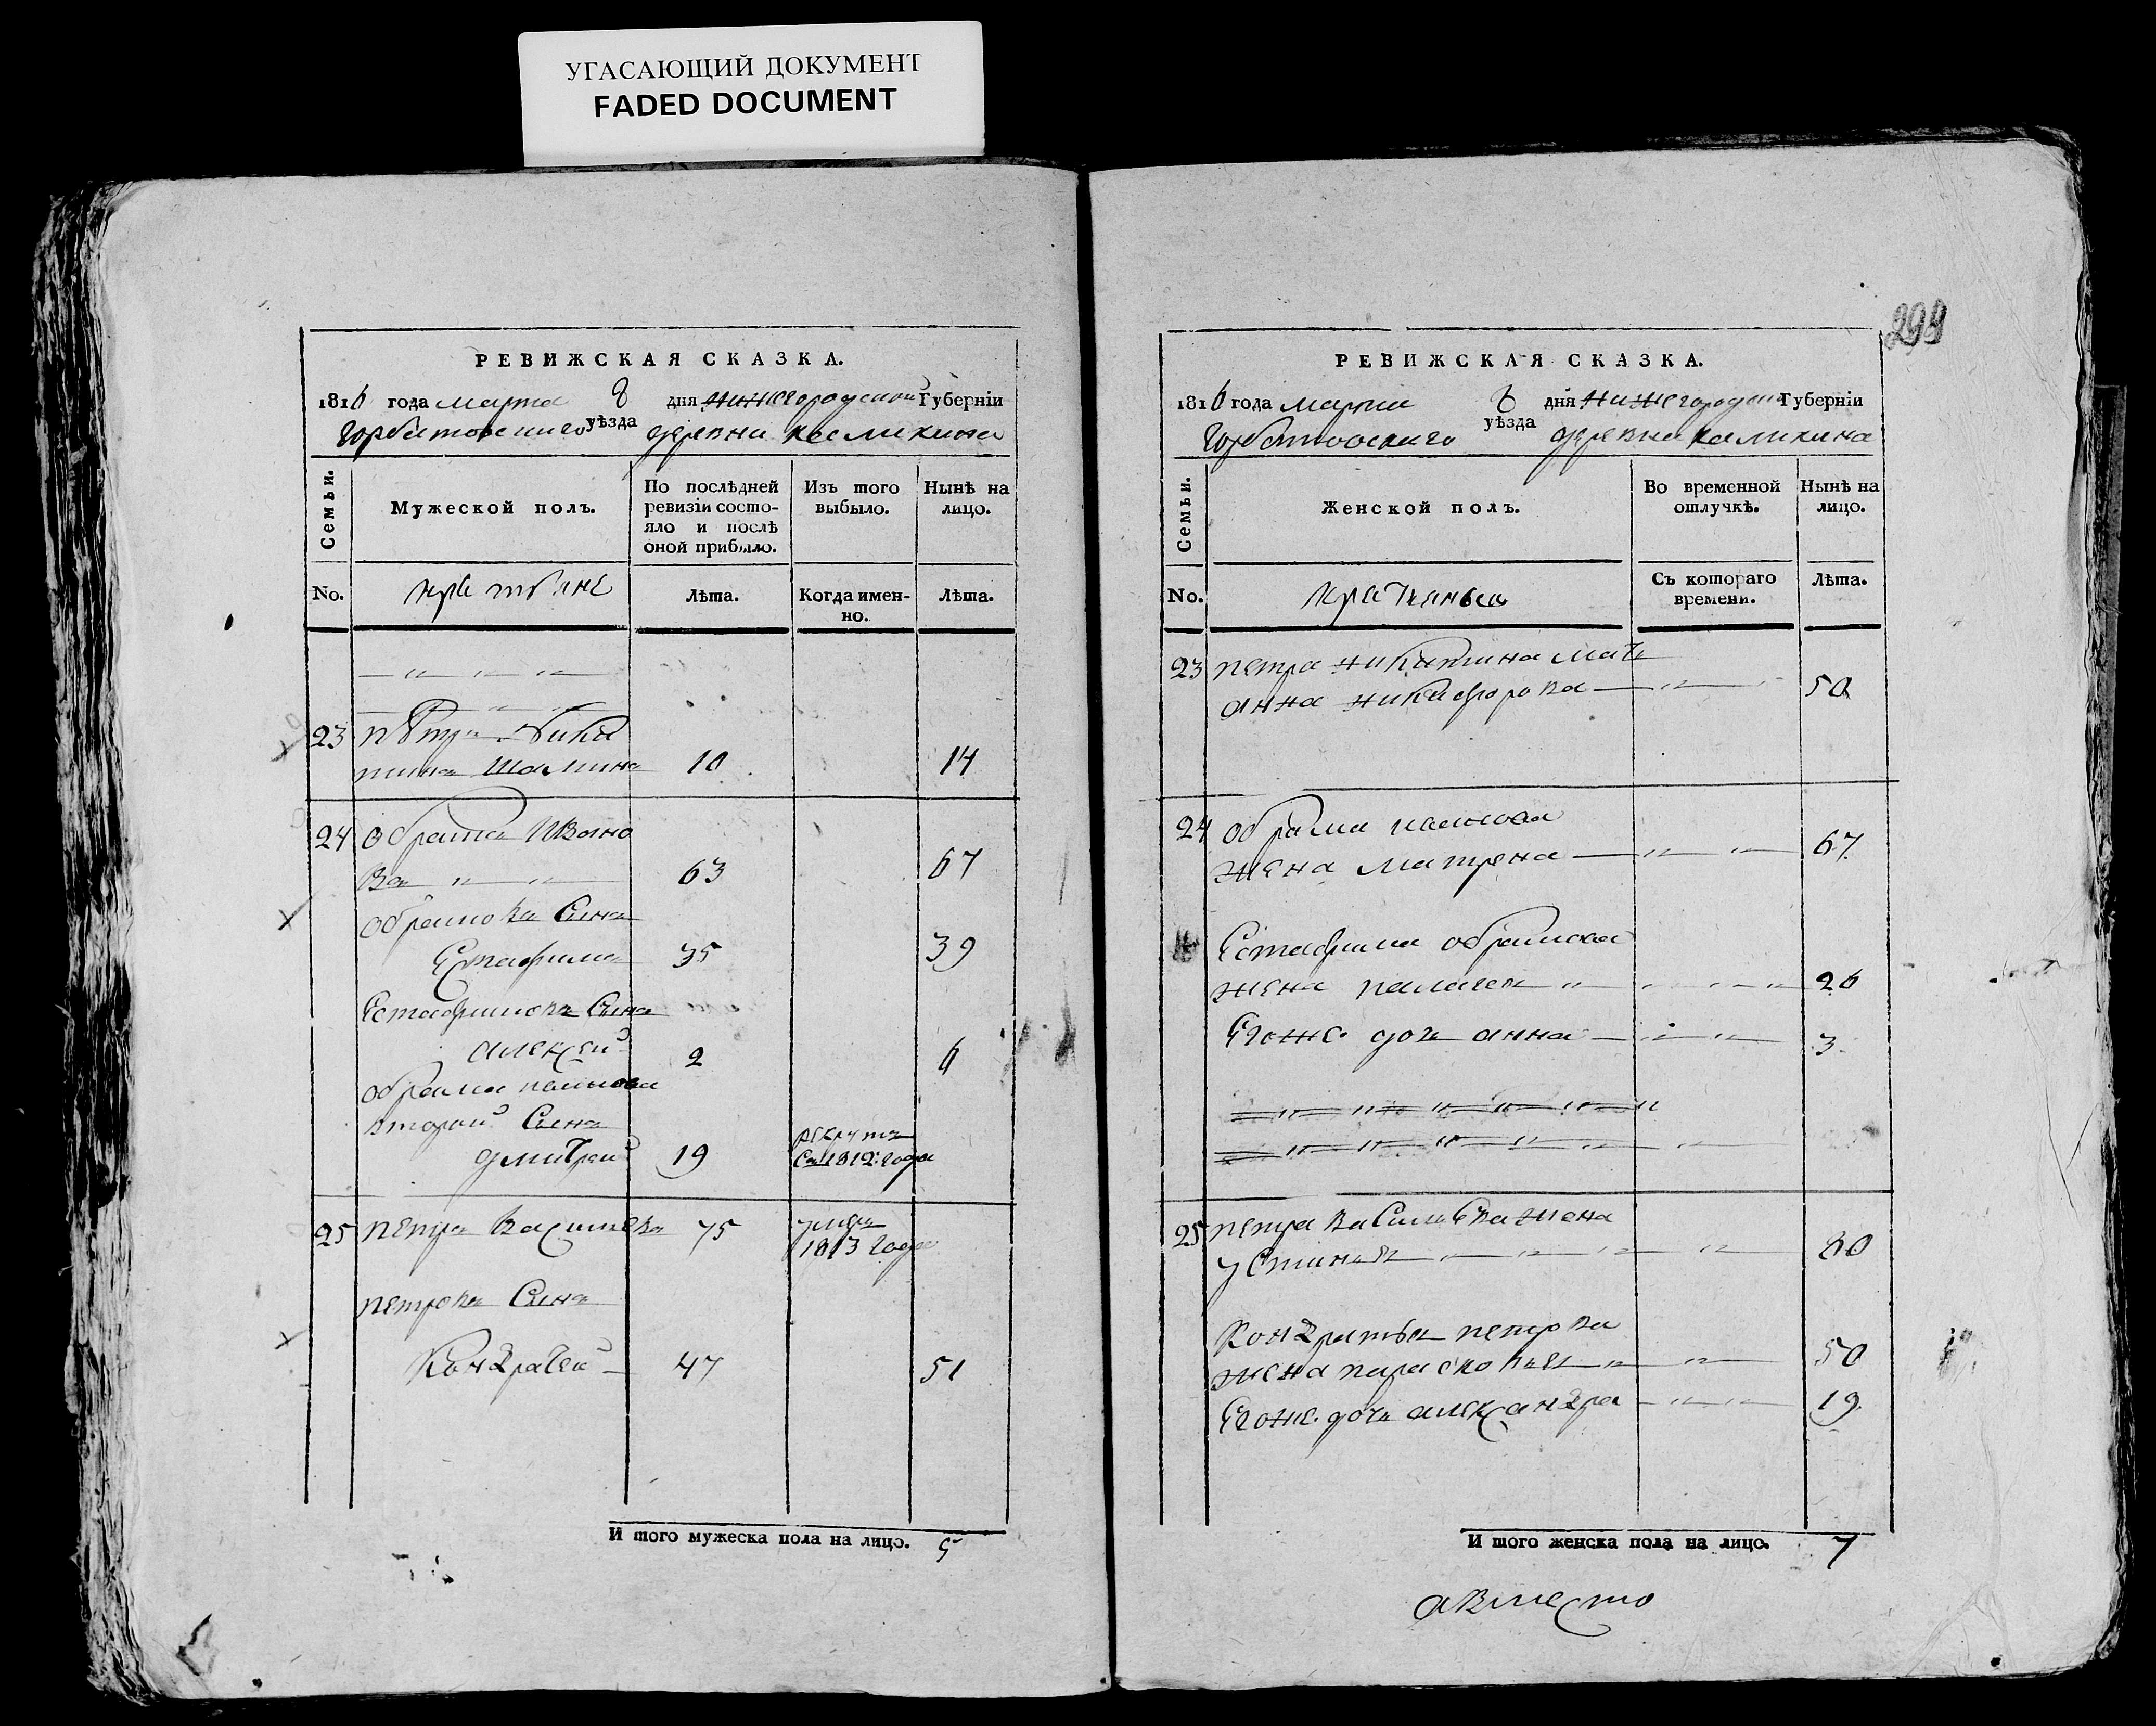 УГАСАЮЩИЙ ДОКУМЕНТ
FADED DOCUMENT
РЕВИЖСКАЯ СКАЗКА.
1816 года марта 8 дня нижегородской Губерніи
Горбатовскаго уѣзда деревни каликина
Семьи.
Мужеской полъ.
По послѣдней ревизіи состояло и послѣ оной прибыло.
Изъ того выбыло.
Нынѣ на лицо.
No.
Лѣта.
Когда именно.
Лѣта.
23 Петръ Ники
тинъ 10 14
24 обрамъ Ивано
въ 63 67
обрамовъ Сынъ
Естафимъ 35 39
Естафимовъ Сынъ
алексей 2 6
обрама иванова
второй Сынъ рекрутъ
дмитрей 19 1812 года
25 петръ Васильевъ 75 умре
1813 года
петровъ Сынъ
Кондратей 47 51
И того мужеска пола на лицо. 5
299
РЕВИЖСКАЯ СКАЗКА.
1816 года марта 8 дня нижегородской Губерніи
Горбатовскаго уѣзда деревни каликина
Семьи.
Женской полъ.
Во временной отлучкѣ.
Нынѣ на лицо.
No.
Съ котораго времени.
Лѣта.
23 петра никитина мать
анна никифорова 50
24 обрама иванова
жена матрена 67
Естафима обрамова
жена пелагея 26
Егоже дочь анна 3
25 петра Васильева жена
устинья 80
Кондратья петрова
жена парасковья 50
Егоже дочь александра 19
И того женска пола на лицо. 7
авместо